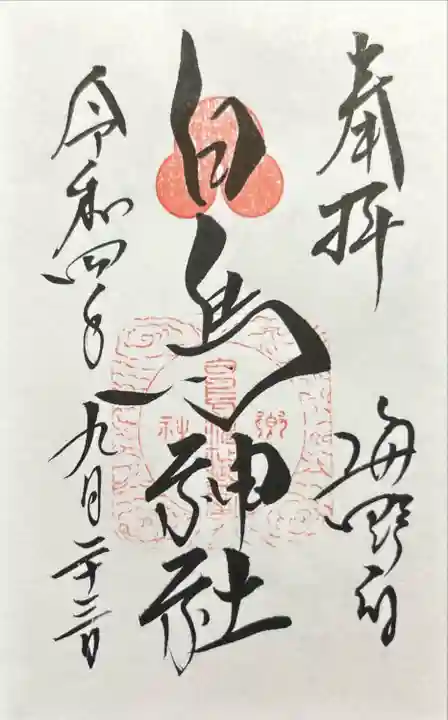 奉拝
海野宿
白鳥神社
郷社
令和四年九月二十三日